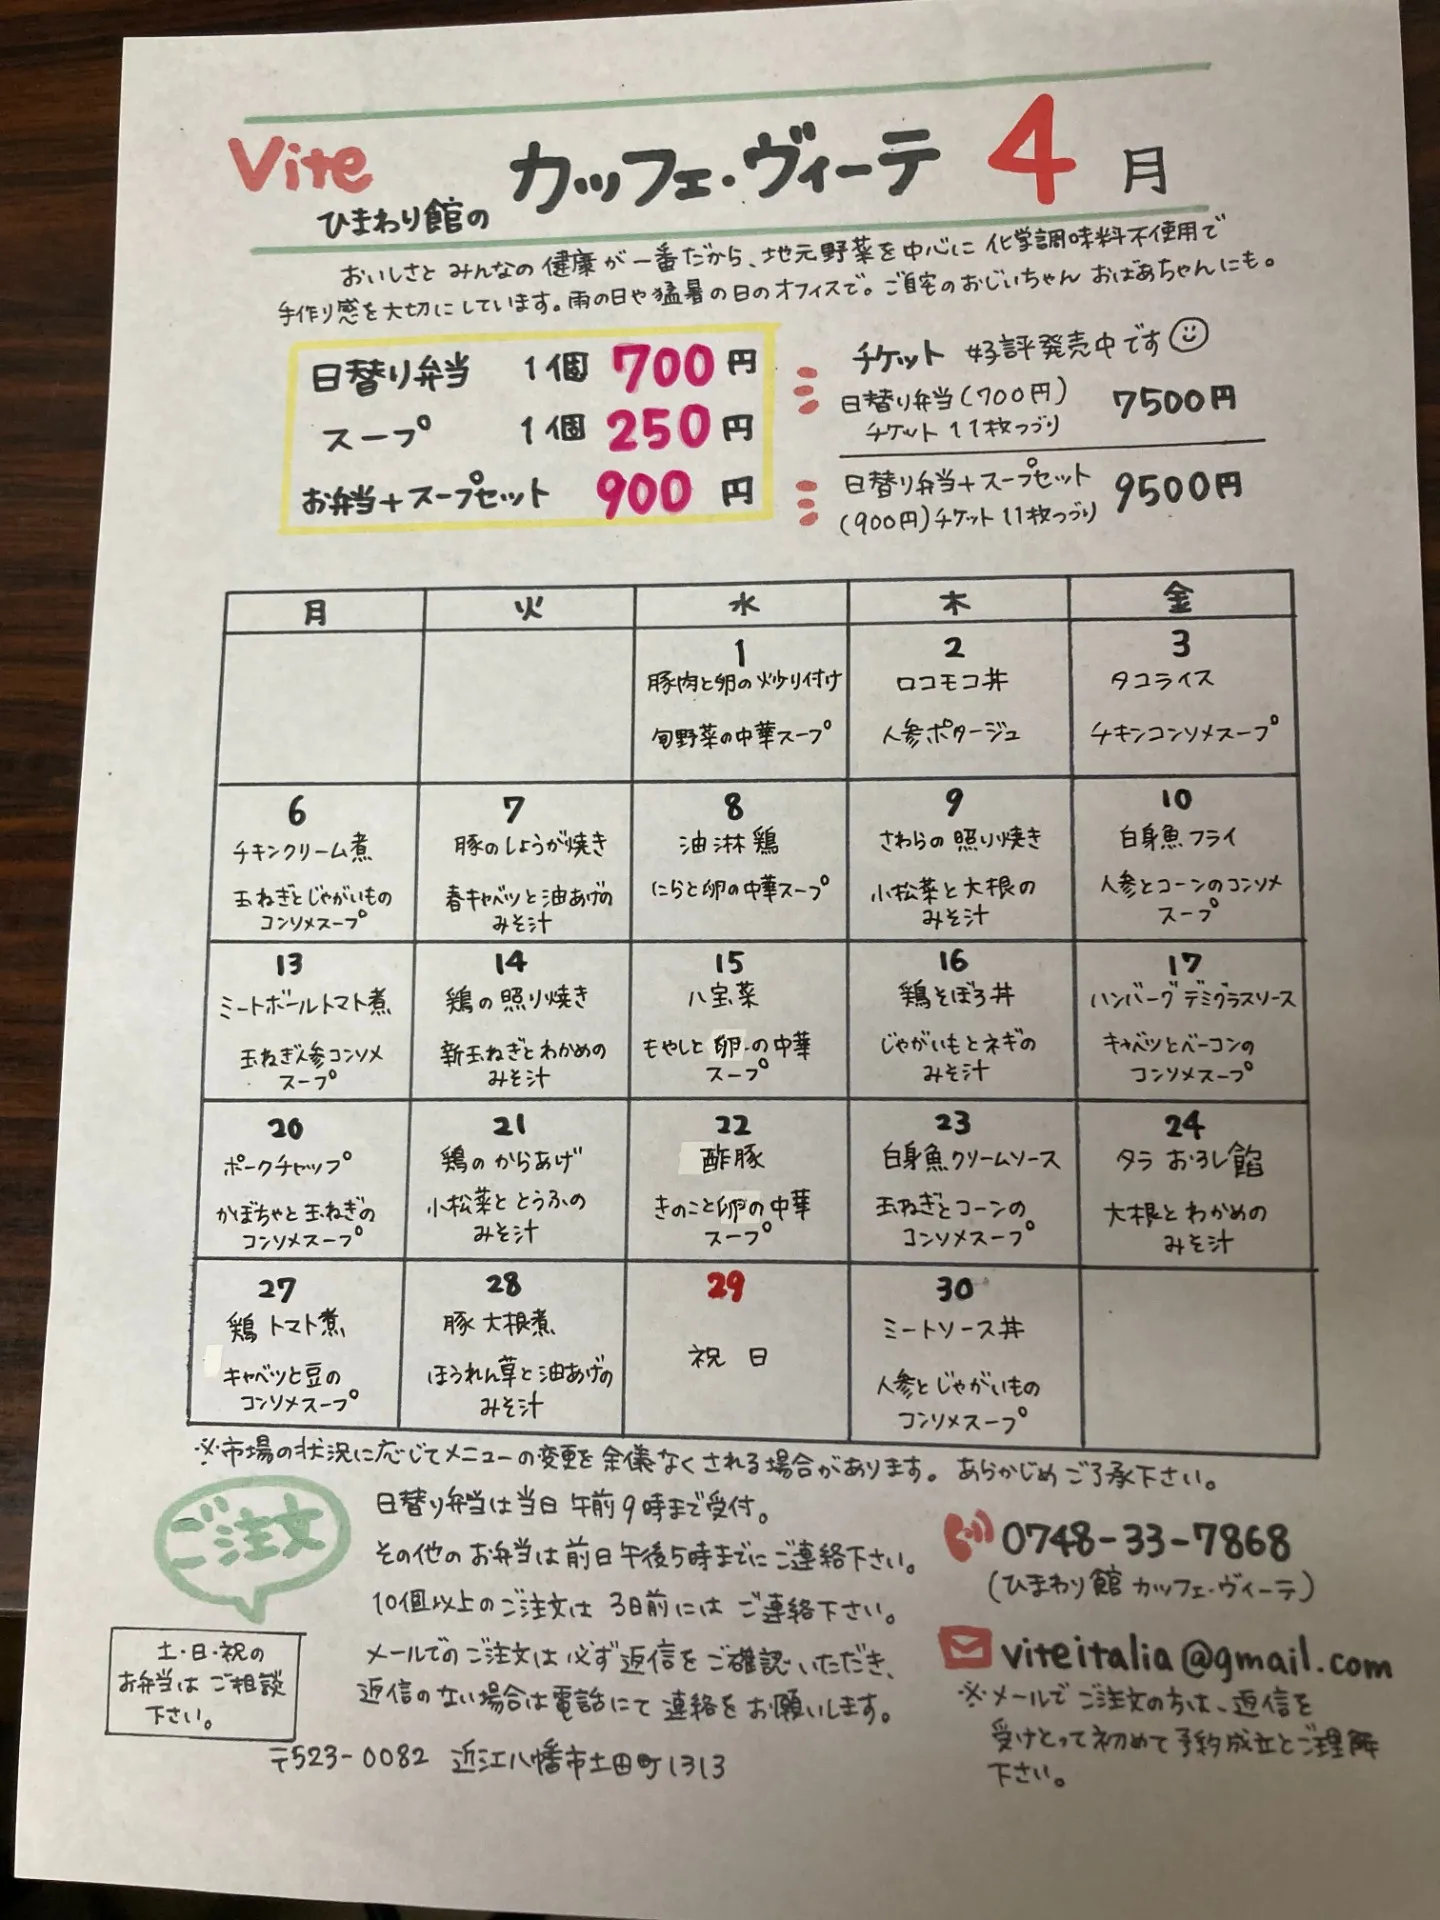 Vite
ひまわり館の
カッフェ・ヴィーテ 4月
おいしさと みんなの 健康が一番だから、地元野菜を中心に 化学調味料不使用で
手作り感を大切にしています。雨の日や猛暑の日のオフィスで。ご自宅のおじいちゃん おばあちゃんにも。
日替り弁当 1個 700円
スープ 1個 250円
お弁当+スープセット 900円
チケット 好評発売中です
日替り弁当(700円) 7500円
チケット 11枚つづり
日替り弁当+スープセット 9500円
(900円)チケット 11枚つづり
月 火 水 木 金
1
豚肉と卵の炒り付け
旬野菜の中華スープ
2
ロコモコ丼
人参ポタージュ
3
タコライス
チキンコンソメスープ
6
チキンクリーム煮
玉ねぎとじゃがいもの
コンソメスープ
7
豚のしょうが焼き
春キャベツと油あげの
みそ汁
8
油淋鶏
にらと卵の中華スープ
9
さわらの照り焼き
小松菜と大根の
みそ汁
10
白身魚フライ
人参とコーンのコンソメ
スープ
13
ミートボールトマト煮
玉ねぎ人参コンソメ
スープ
14
鶏の照り焼き
新玉ねぎとわかめの
みそ汁
15
八宝菜
もやしと卵の中華
スープ
16
鶏そぼろ丼
じゃがいもとネギの
みそ汁
17
ハンバーグデミグラスソース
キャベツとベーコンの
コンソメスープ
20
ポークチャップ
かぼちゃと玉ねぎの
コンソメスープ
21
鶏のからあげ
小松菜ととうふの
みそ汁
22
酢豚
きのこと卵の中華
スープ
23
白身魚クリームソース
玉ねぎとコーンの
コンソメスープ
24
タラ おろし餡
大根とわかめの
みそ汁
27
鶏トマト煮
キャベツと豆の
コンソメスープ
28
豚大根煮
ほうれん草と油あげの
みそ汁
29
祝日
30
ミートソース丼
人参とじゃがいもの
コンソメスープ
※市場の状況に応じてメニューの変更を余儀なくされる場合があります。あらかじめご了承下さい。
ご注文
日替り弁当は当日 午前9時まで受付。
その他のお弁当は前日午後5時までにご連絡下さい。
10個以上のご注文は 3日前には ご連絡下さい。
メールでのご注文は必ず返信をご確認いただき、
返信のない場合は電話にて連絡をお願いします。
土・日・祝の
お弁当はご相談
下さい。
〒523-0082 近江八幡市土田町1313
0748-33-7868
(ひまわり館 カッフェ・ヴィーテ)
viteitalia@gmail.com
※メールでご注文の方は、返信を
受けとって初めて予約成立とご理解
下さい。